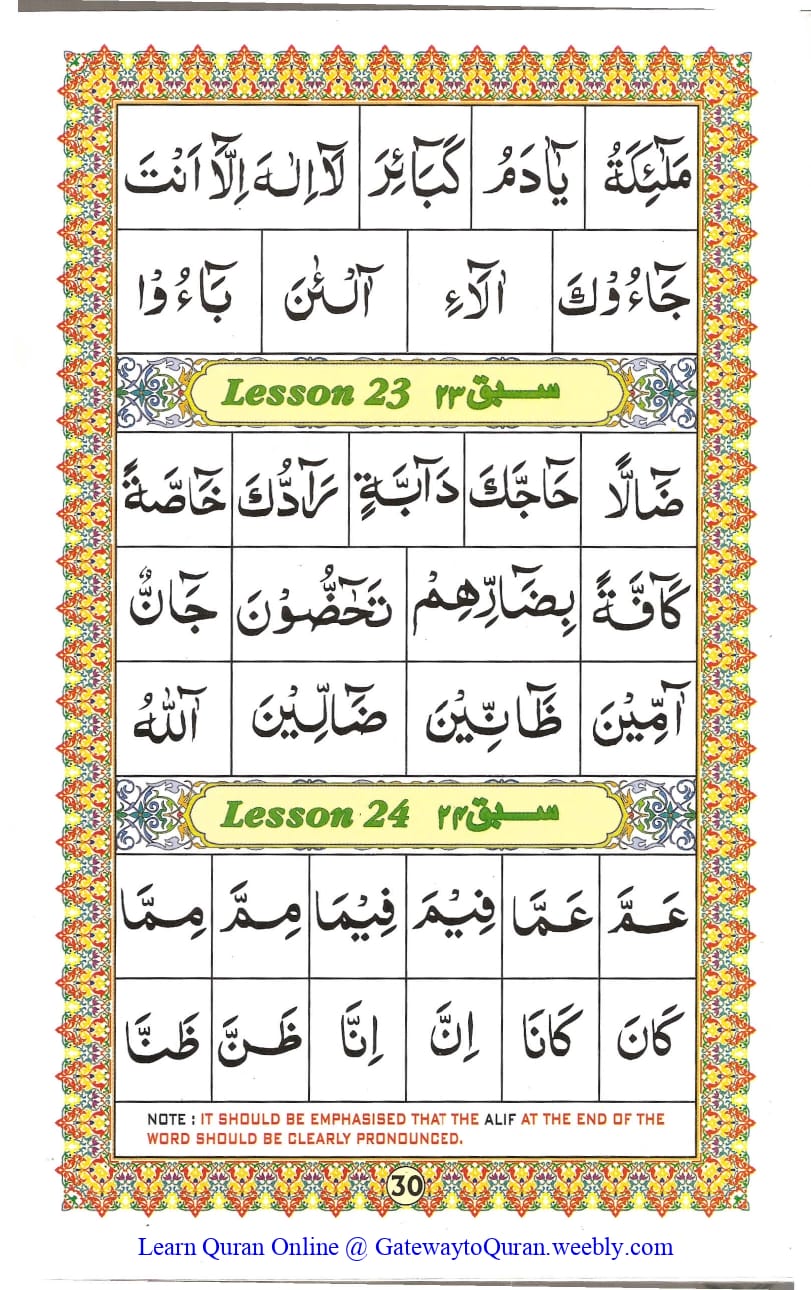 مَلٰٓئِكَةُ يٰٓاٰدَمُ كَبَآئِرَ لَآ اِلٰهَ اِلَّآ اَنْتَ
جَآءُوْكَ اٰلَآءِ آلْـٰٔنَ بَآءُوْا
Lesson 23 سبق ۲۳
ضَآلًّا حَآجَّكَ دَآبَّةٍ رَآدُّكَ خَآصَّةً
كَآفَّةً بِضَآرِّهِمْ تَحٰٓضُّوْنَ جَآنٌّ
آمِّيْنَ ظَآنِّيْنَ ضَآلِّيْنَ آللّٰهُ
Lesson 24 سبق ۲۴
عَمَّ عَمَّا فِيْمَ فِيْمَا مِمَّ مِمَّا
كَانَ كَانَا اِنَّ اِنَّا ظَنَّ ظَنَّا
NOTE : IT SHOULD BE EMPHASISED THAT THE ALIF AT THE END OF THE
WORD SHOULD BE CLEARLY PRONOUNCED.
30
Learn Quran Online @ GatewaytoQuran.weebly.com